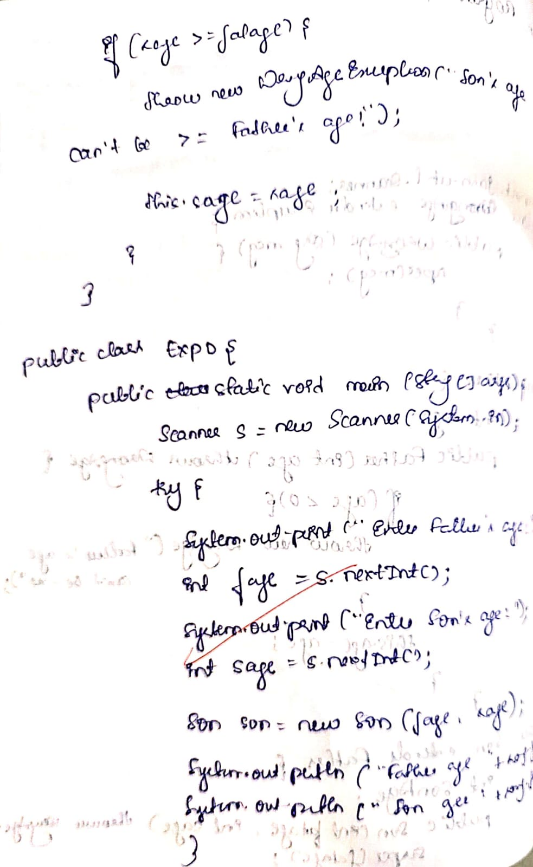 if (sage >= fatage) {
throw new WrongAgeException("Son's age
can't be >= Father's age!");
this.sage = sage ;
}
}
public class EXPD {
public static void main (String [] args);
Scanner S = new Scanner(System.in);
try {
System.out.print ("Enter Father's age
int fage = s.nextInt();
System.out.print ("Enter Son's age:");
int sage = s.nextInt();
Son son = new Son (fage, sage);
System.out.println ("Father age "+
System.out.println (" Son
}